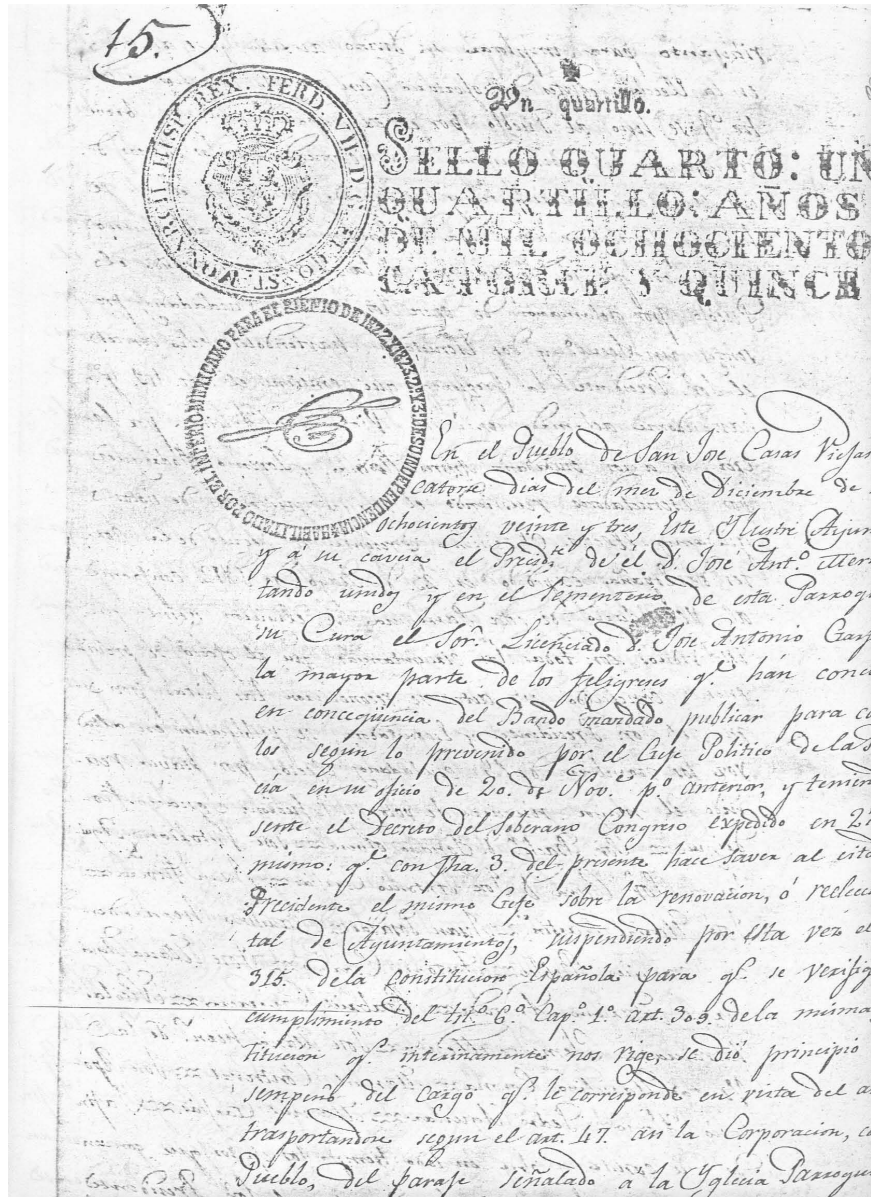 15.
FERD. VII. D. G. ET CONST. MONARCH. HISP. REX.
Un quartillo.
SELLO QUARTO: UN
QUARTILLO: AÑOS
DE MIL OCHOCIENTO
CATORCE Y QUINCE
HABILITADO POR EL IMPERIO MEXICANO PARA EL BIENIO DE 1822 Y 1823. 2º Y 3º DE SU INDEPENDENCIA
En el Pueblo de San Jose Casas Viejas
catorse dias del mes de Diciembre de
ochocientos veinte y tres, Este Ylustre Ayun
y á su cavesa el Presidte. de él D. José Anto. Mer
tando unidos y en el Sementerio de esta Parroqu
su Cura el Sor. Licenciado D. Jose Antonio Garf
la mayor parte de los feligreses qe. hán conc
en conceqüencia del Bando mandado publicar para c
los segun lo prevenido por el Gefe Politico de la
cia en su oficio de 20. de Nove. po. anterior, y tenien
sente el Decreto del Soberano Congreso expedido en 2
mismo: qe. con fha. 3. del presente hace saver al cita
Precidente el mismo Gefe sobre la renovacion, ó relec
tal de Ayuntamientos, suspendiendo por esta vez el
315. de la constitucion Española para qe. se verifiq
cumplimiento del tito. 6º. Capº. 1º. art. 309. de la misma
titucion qe. interinamente nos rige, se dió principio
sempeño del cargo qe. le corresponde en vista del a
trasportandose segun el art. 47. an la Corporacion, c
Pueblo, del paraje señalado a la Yglecia Parroqu